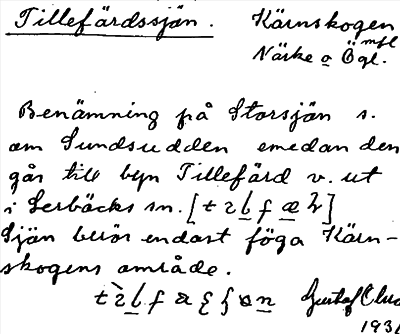 Tillefärdssjön. Kärnskogen
Närke o Ögl. mfl
Benämning på Storsjön s.
om Sundsudden emedan den
går till byn Tillefärd v. ut
i Lerbäcks sn.
Sjön berör endast föga Kärn-
skogens område.
Gustaf
193